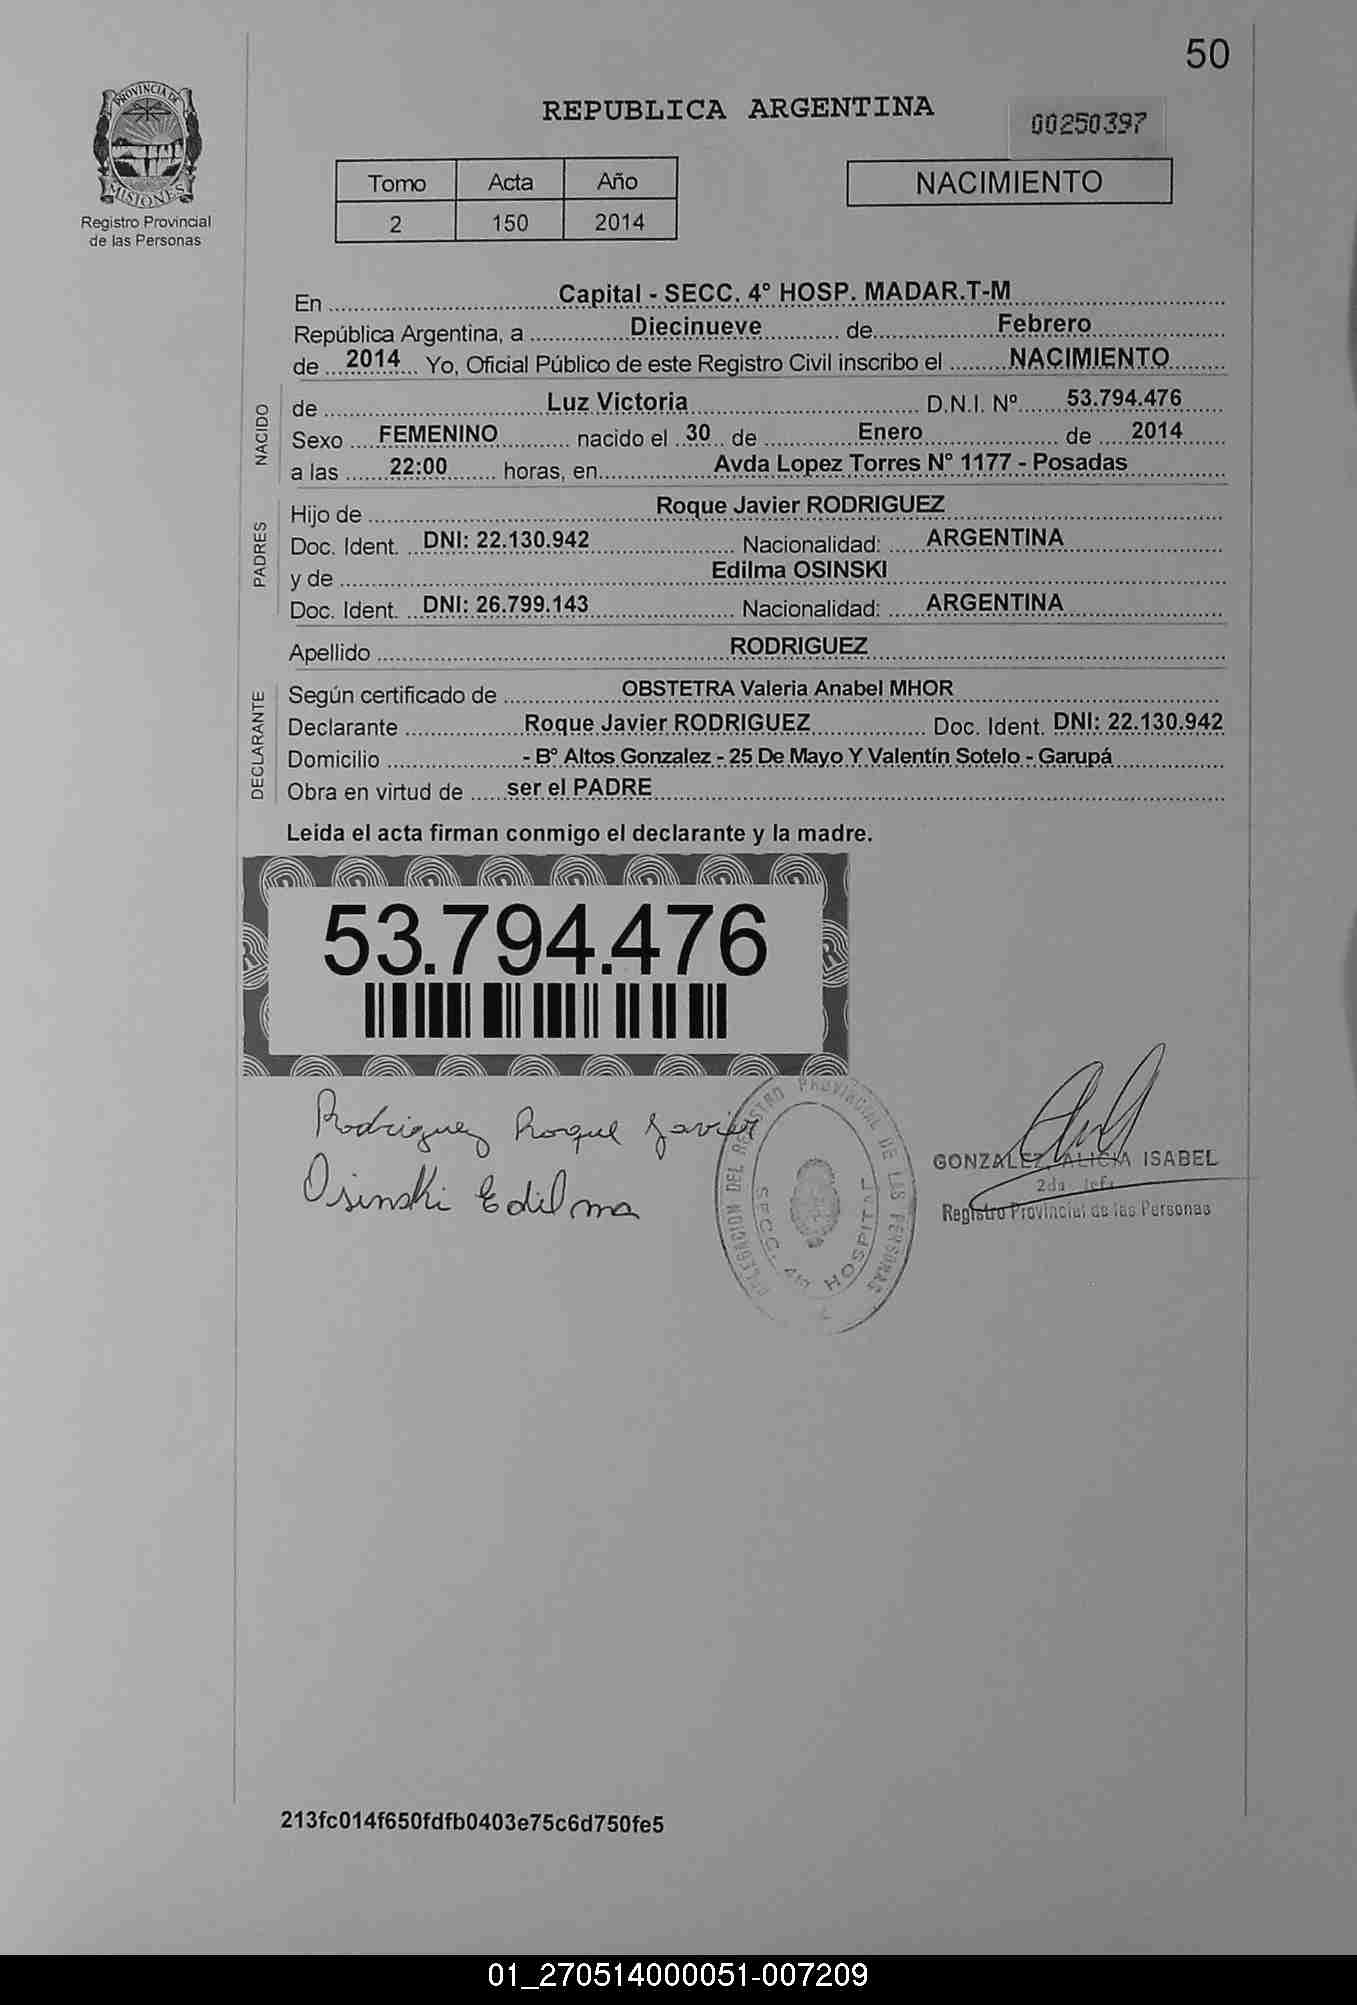 50
PROVINCIA DE
MISIONES
Registro Provincial
de las Personas
REPUBLICA ARGENTINA
00250397
Tomo Acta Año
2 150 2014
NACIMIENTO
En Capital - SECC. 4° HOSP. MADAR.T-M
República Argentina, a Diecinueve de Febrero
de 2014 Yo, Oficial Público de este Registro Civil inscribo el NACIMIENTO
NACIDO
de Luz Victoria D.N.I. Nº 53.794.476
Sexo FEMENINO nacido el 30 de Enero de 2014
a las 22:00 horas, en Avda Lopez Torres N° 1177 - Posadas
PADRES
Hijo de Roque Javier RODRIGUEZ
Doc. Ident. DNI: 22.130.942 Nacionalidad: ARGENTINA
y de Edilma OSINSKI
Doc. Ident. DNI: 26.799.143 Nacionalidad: ARGENTINA
Apellido RODRIGUEZ
DECLARANTE
Según certificado de OBSTETRA Valeria Anabel MHOR
Declarante Roque Javier RODRIGUEZ Doc. Ident. DNI: 22.130.942
Domicilio - B° Altos Gonzalez - 25 De Mayo Y Valentín Sotelo - Garupá
Obra en virtud de ser el PADRE
Leída el acta firman conmigo el declarante y la madre.
53.794.476
Rodriguez Roque Javier
Osinski Edilma
DELEGACION DEL REGISTRO PROVINCIAL DE LAS PERSONAS
SECC. 4ta HOSPITAL
GONZALEZ, ALICIA ISABEL
2da Jefa
Registro Provincial de las Personas
213fc014f650fdfb0403e75c6d750fe5
01_270514000051-007209